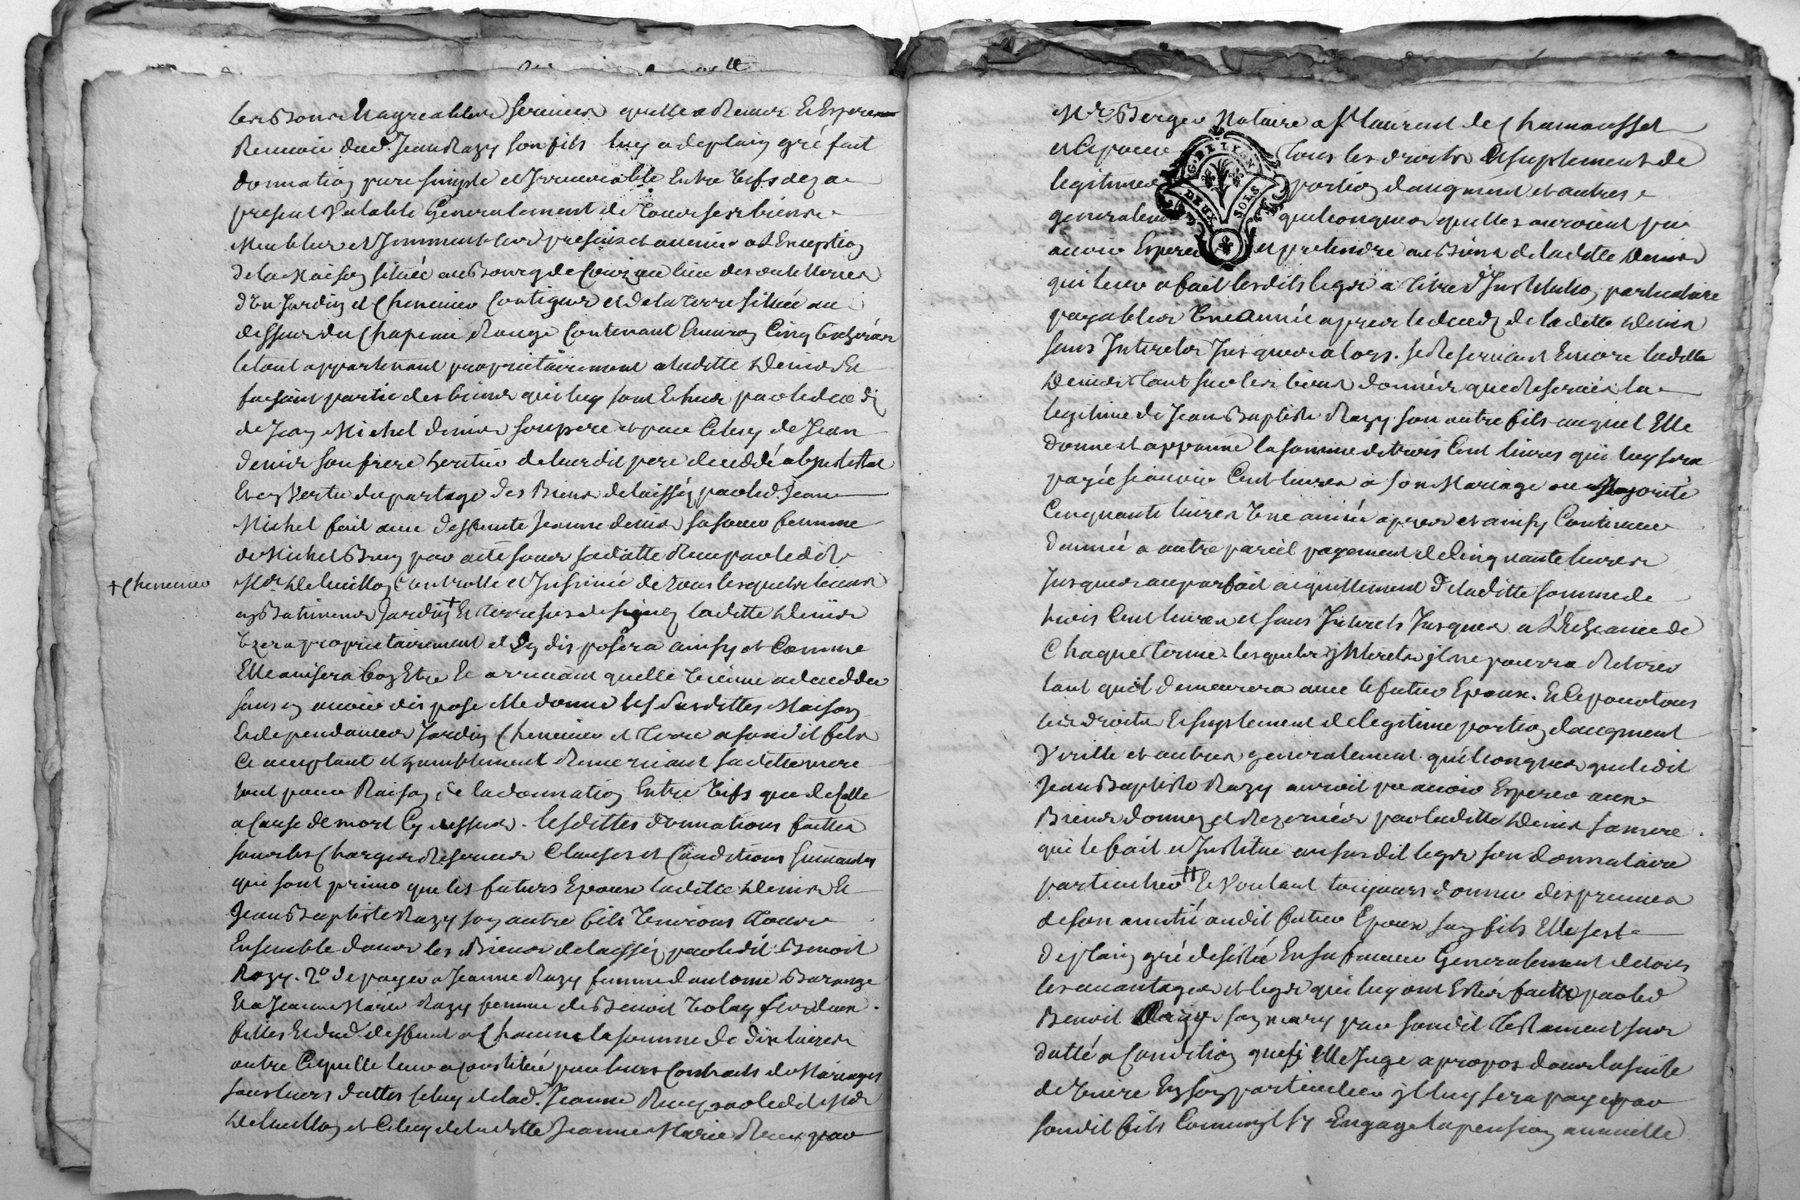 les Bons & agreables services quelle a Receus Et Espere
Recevoir dud. Jean Razy son fils luy a deplain gré fait
donnation pure simple et Irrevocable Entre Vifs deza
present Valable Generalement de tous ses biens
Meubles et Immeubles presens et avenir a L'Exception
de la Maison située au Bourg de Couzieu lieu des
d'un Jardin et Chenevier Contigus et de la terre située au
dessus du Chapeau Rouge Contenant Environ Cinq
le tout appartenant proprietairement a ladite Denis Et
faisant partie des biens qui luy sont Echus par le decedz
de Jean Michel denis son pere et par Celuy de Jean
denis son frere heritier de leur dit pere decedé abjntestat
Et en Vertu du partage des Biens delaissés par led. Jean
Michel fait avec deffunte Jeanne denis sa soeur femme
de Michel par acte sous sa datte Receu par ledit
Me Controllé et Insinué de tous lesquels
+ Chenevier
en Batiments Jardin + Et terre sus designez ladite Denis
jouira proprietairement et En disposera ainsy et Comme
Elle avisera bon Etre Et arrivant quelle vienne a decedder
sans en avoir disposé Elle donne lesdites Maison
Et dependances Jardin Chenevier et terre a son dit fils
Ce acceptant et humblement Remerciant sa ditte mere
tant pour Raison de la donnation Entre Vifs que de Celle
a Cause de mort Cy dessus. lesdittes donnations faittes
sous les Charges Reserves Clauses et Conditions suivantes
qui sont primo que les futurs Epoux ladite Denis Et
Jean Baptiste Razy son autre fils Vivront tous
Ensemble dans les Biens delaissés par ledit Benoit
Razy. 2o de payer a Jeanne Razy femme d'antoine Barange
Et a Jeanne Marie Razy femme de Benoit ses deux
filles Et dud. deffunt a Chacune la somme de dix livres
outre Ce quelle leur a constitué par leurs Contrats de Mariages
sous leurs dattes Celuy de lad. Jeanne Receu par led. Me
et Celuy de ladite Jeanne Marie Receu par
Me Berger Notaire a St Laurent de Chamousset
et Ce pour tous les droits Et suplement de
legitimes portion daugment et autres
generalement quelconques quelles auroient pu
avoir Esperer et pretendre aux Biens de ladite Denis
qui leur a fait lesdits legs a titre d'Institution particuliere
payables Une année apres le decedz de ladite Denis
sans Interets Jusques alors. se Reservant Encore ladite
Denis tant sur les biens donnés que Reservés la
legitime de Jean Baptiste Razy son autre fils auquel Elle
donne et appanne la somme de trois Cent livres qui luy sera
payée scavoir Cent livres a son Mariage ou Majorité
Cinquante livres Une année apres et ainsy Continuer
d'année a autre pareil payement de Cinquante livres
Jusques au parfait acquittement De ladite somme de
trois Cent livres et sans Interets Jusques a L'Echeance de
Chaque terme lesquels Interets il ne pourra Retirer
tant quil demeurera avec le futur Epoux. Et Ce pour tous
les droits Et suplement de legitime portion d'augment
Virille et autres generalement quelconques que ledit
Jean Baptiste Razy auroit pu avoir Esperer aux
Biens donnez et Rezervés par ladite Denis sa mere
qui le fait et Institue au susdit legs son donnataire
particulier # Et Voulant toujours donner des preuves
de son amitié audit futur Epoux son fils Elle sest
deplain gré desistée En sa faveur Generalement de tous
les avantages et legs qui luy ont Etés faits par led
Benoit Razy son mary par son dit Testament sus
datté a Condition que sy Elle Juge a propos dans la suite
de Vivre En son particulier il luy sera payé par
son dit fils Comme il s'y Engage la pension annuelle
G. DE LYON
DEUX SOLS